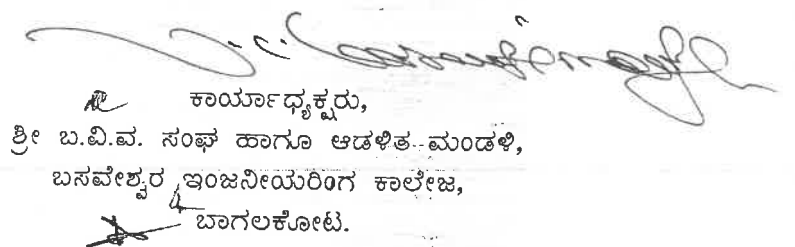 ಕಾರ್ಯಾಧ್ಯಕ್ಷರು,
ಶ್ರೀ ಬ.ವಿ.ವ. ಸಂಘ ಹಾಗೂ ಆಡಳಿತ ಮಂಡಳಿ,
ಬಸವೇಶ್ವರ ಇಂಜನೀಯರಿಂಗ ಕಾಲೇಜ,
ಬಾಗಲಕೋಟ.